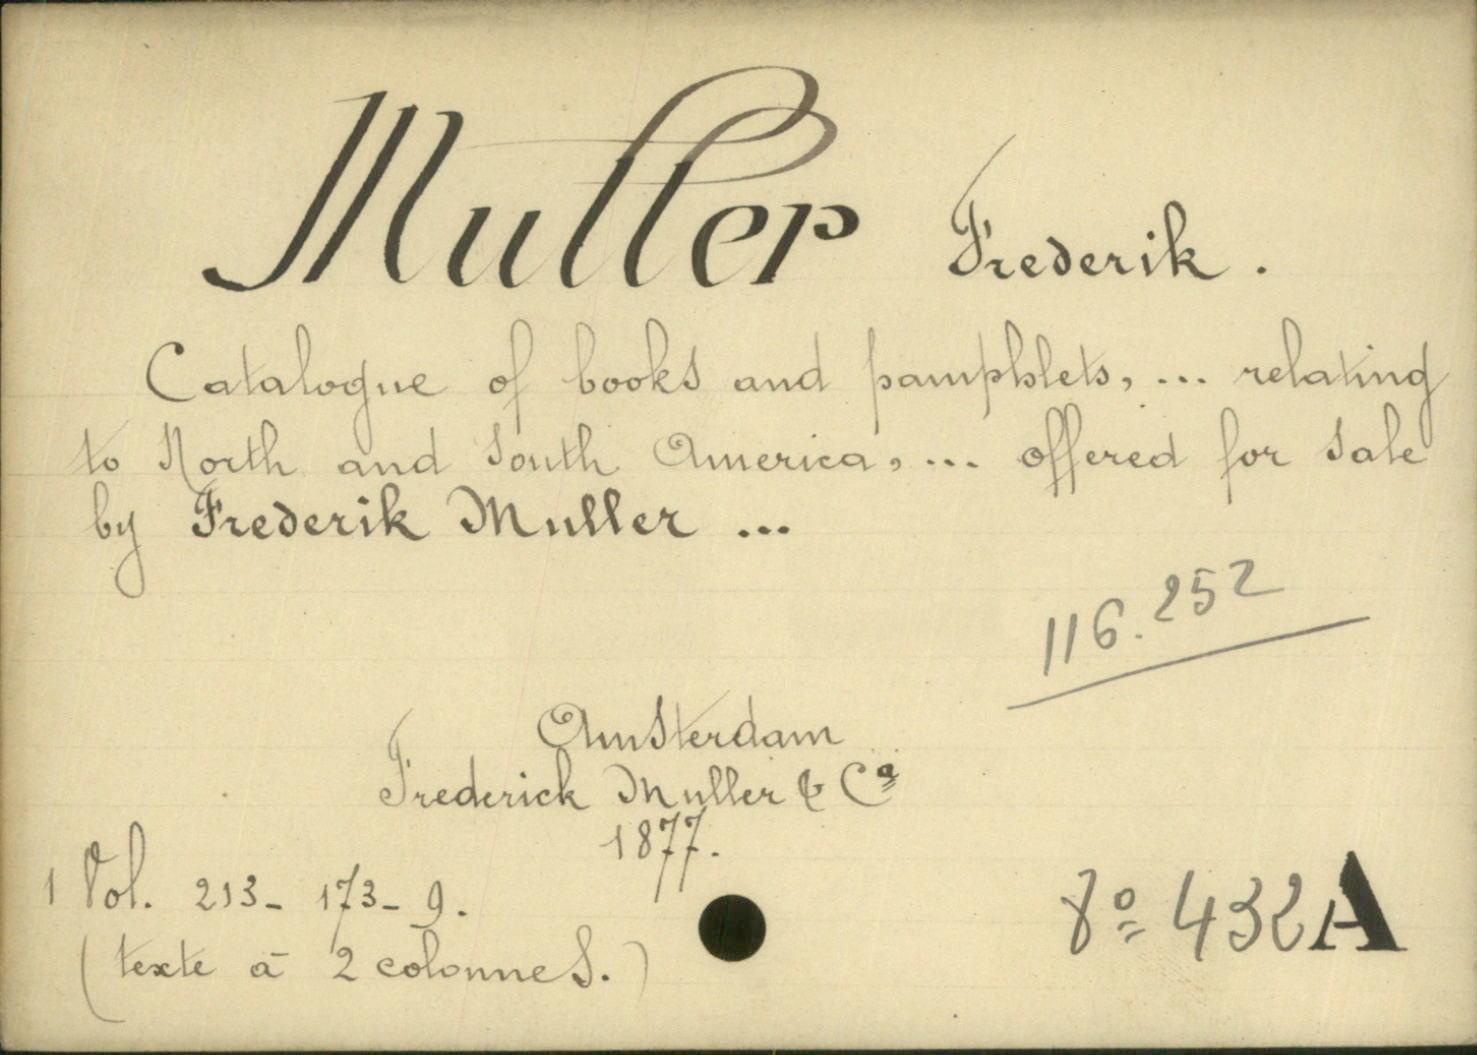 Muller Frederik.
Catalogue of books and pamphlets, ... relating
to North and South America, ... offered for sale
by Frederik Muller ...
116.252
Amsterdam
Frederick Muller & Cº
1877.
1 Vol. 213- 173- 9.
(texte à 2 colonnes.)
8º 432A